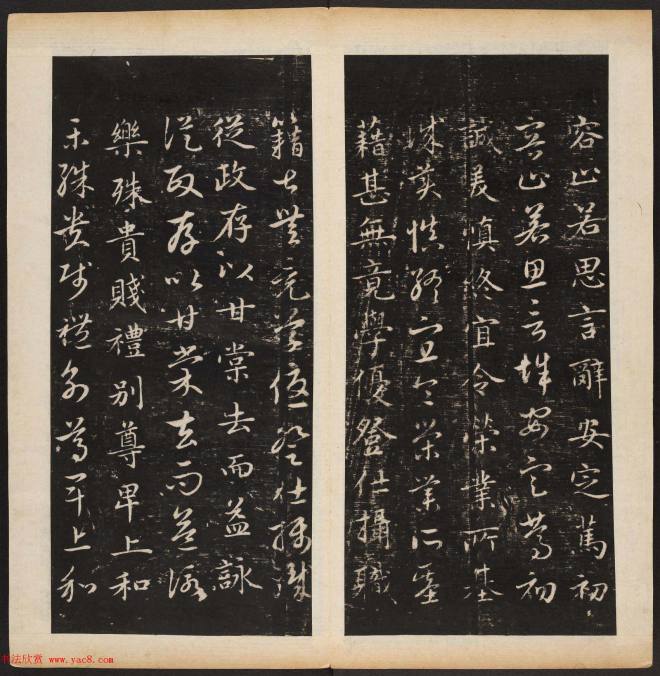 容止若思言辭安定篤初
容止若思言辭安定篤初
誠美慎終宜令榮業所基
誠美慎終宜令榮業所基
藉甚無竟學優登仕攝職
籍甚無竟學優登仕攝職
從政存以甘棠去而益詠
從政存以甘棠去而益詠
樂殊貴賤禮別尊卑上和
樂殊貴賤禮別尊卑上和
书法欣赏 www.yac8.com